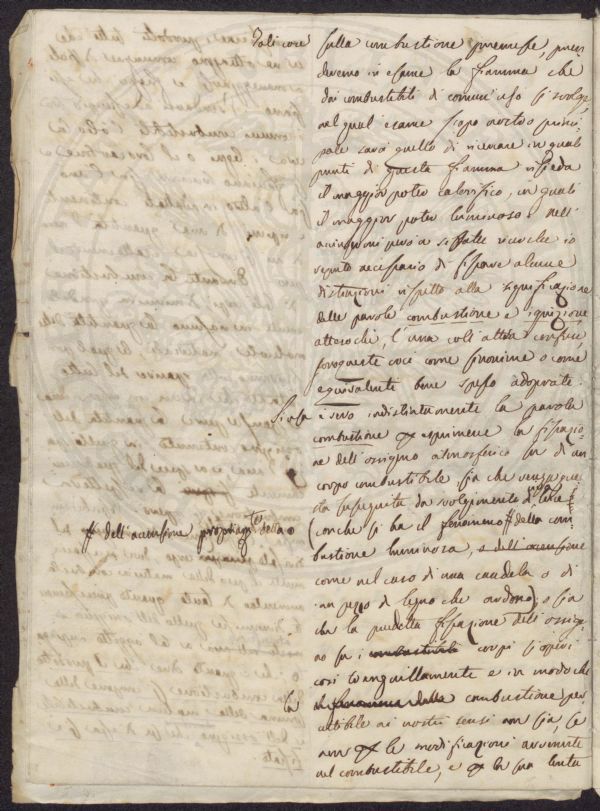 Tali cose sulla combustione premesse, pren
deremo in esame la fiamma che
dai combustibili di comun' uso si svolge,
nel qual esame scopo nostro princi
pale sarà quello di ricercare in quali
punti di questa fiamma risieda
il maggior poter calorifico, in quali
il maggior poter luminoso: nell'
accingermi però a siffatte ricerche io
reputo necessario di fissare alcune
distinzioni rispetto alla significazione
delle parole combustione e ignizione
atteso chè, l'una coll' altra confuse,
furon queste voci come sinonime o come
equivalente bene spesso adoprate.
Si usa invero indistintamente la parola
combustione per esprimere la fissazio
ne dell' ossigeno atmosferico su di un
corpo combustibile sia che venga que
sta susseguita da svolgimento di luce
(con che si ha il fenomeno # della com
# dell' accensione propriamte detta o
bustione luminosa, o dell' accensione
come nel caso di una candela o di
un pezzo di legno che ardono); o sia
che la predetta fissazione dell' ossige
no su i combustibili corpi si operi
così tranquillamente e in modo che
la il fenomeno della combustione per
cettibile ai nostri sensi non sia, se
non per le modificazioni avvenute
nel combustibile, e per la sua lenta